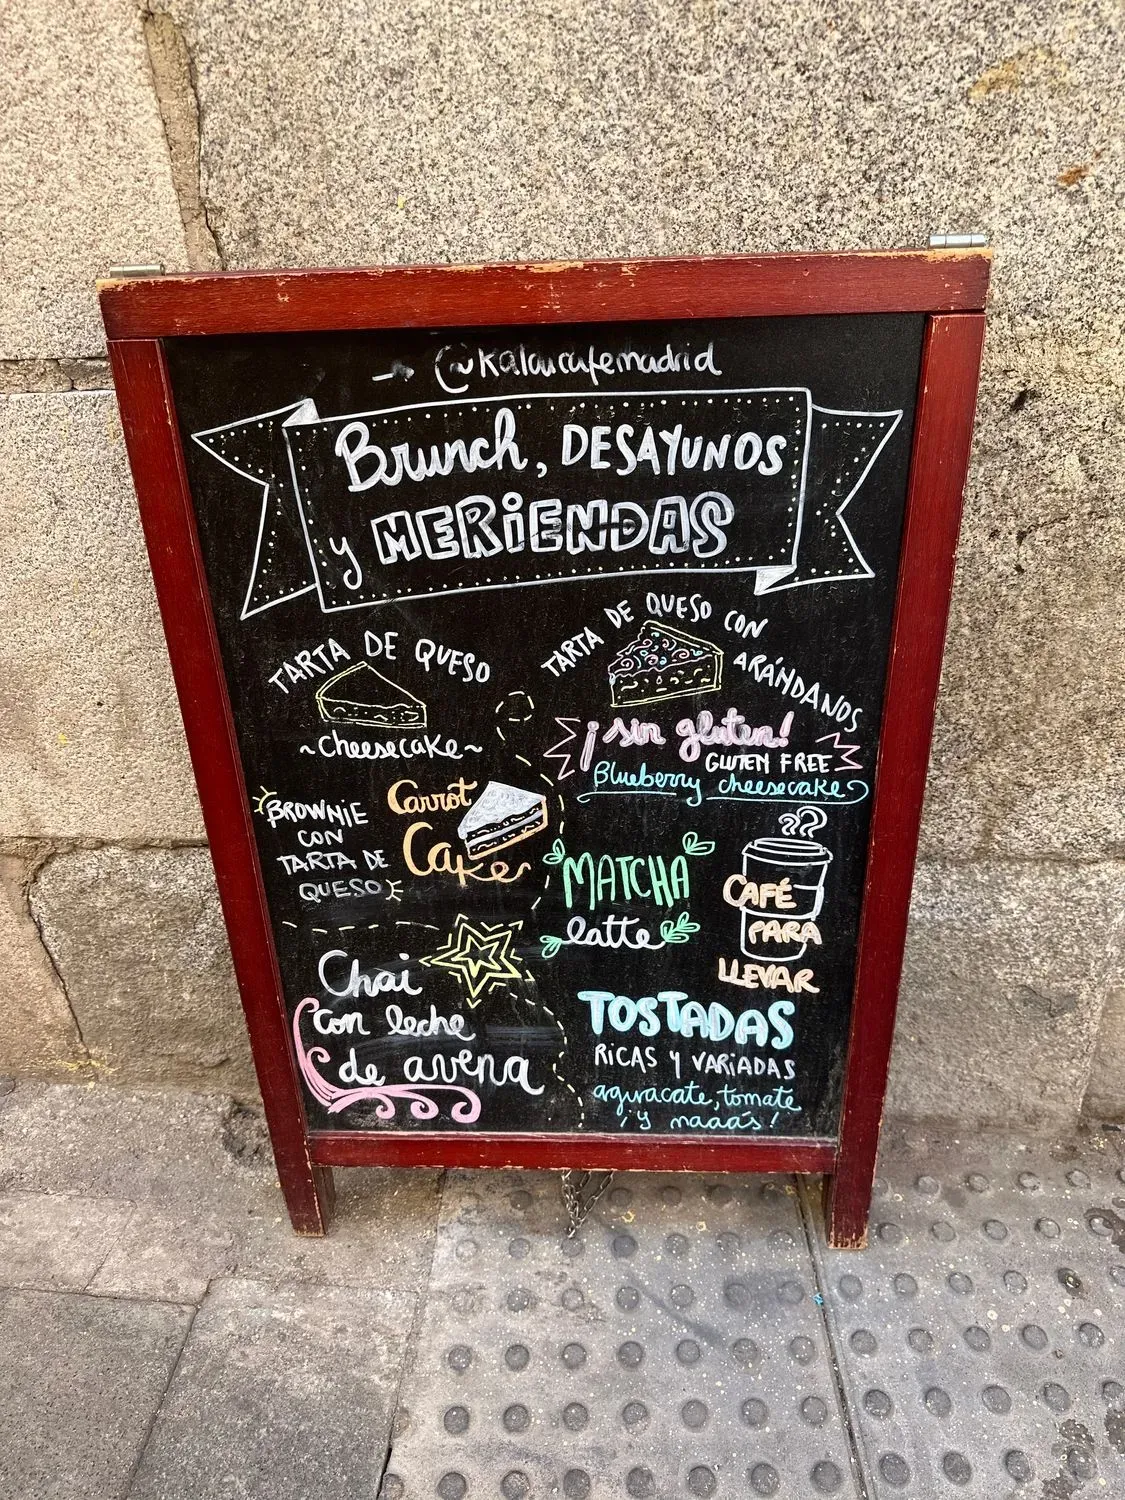 @kalaucafemadrid
Brunch, DESAYUNOS
y MERiENDAS
TARTA DE QUESO
~cheesecake~
TARTA DE QUESO CON ARÁNDANOS
¡sin gluten!
GLUTEN FREE
Blueberry cheesecake
BROWNiE
CON
TARTA DE
QUESO
Carrot
Cake
MATCHA
latte
CAFÉ
PARA
LLEVAR
Chai
con leche
de avena
TOSTADAS
RiCAS Y VARiADAS
aguacate, tomate
¡y maaás!